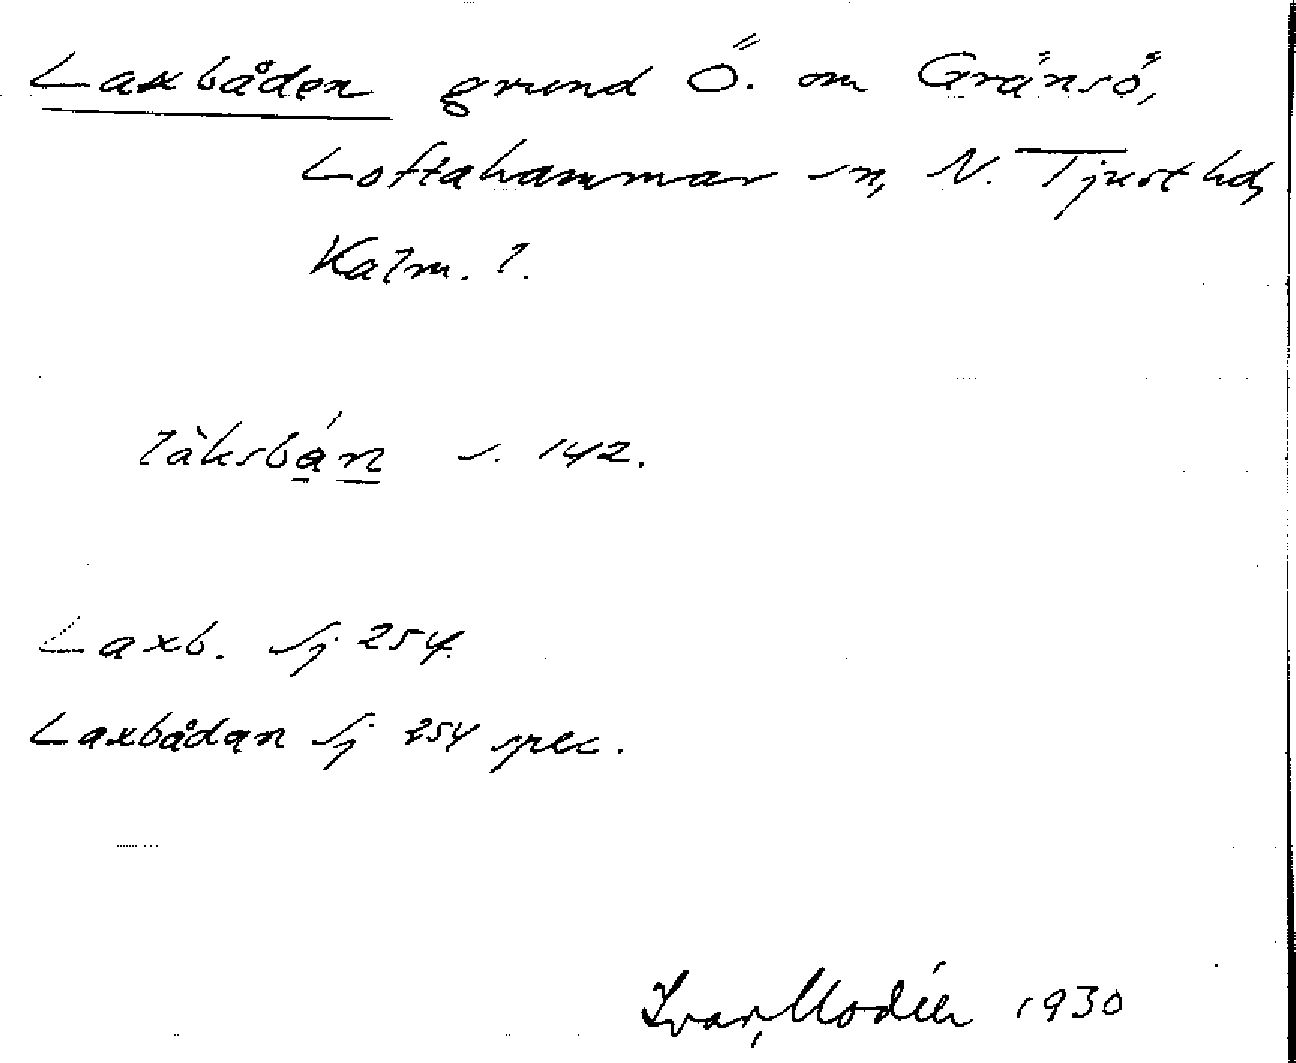 Laxbåden grund Ö. om Gränsö,
Loftahammar sn, N. Tjust hd,
Kalm. l.
làksbán s. 142.
Laxb. Sj 254.
Laxbådan Sj 254 spec.
Ivar Modéer 1930